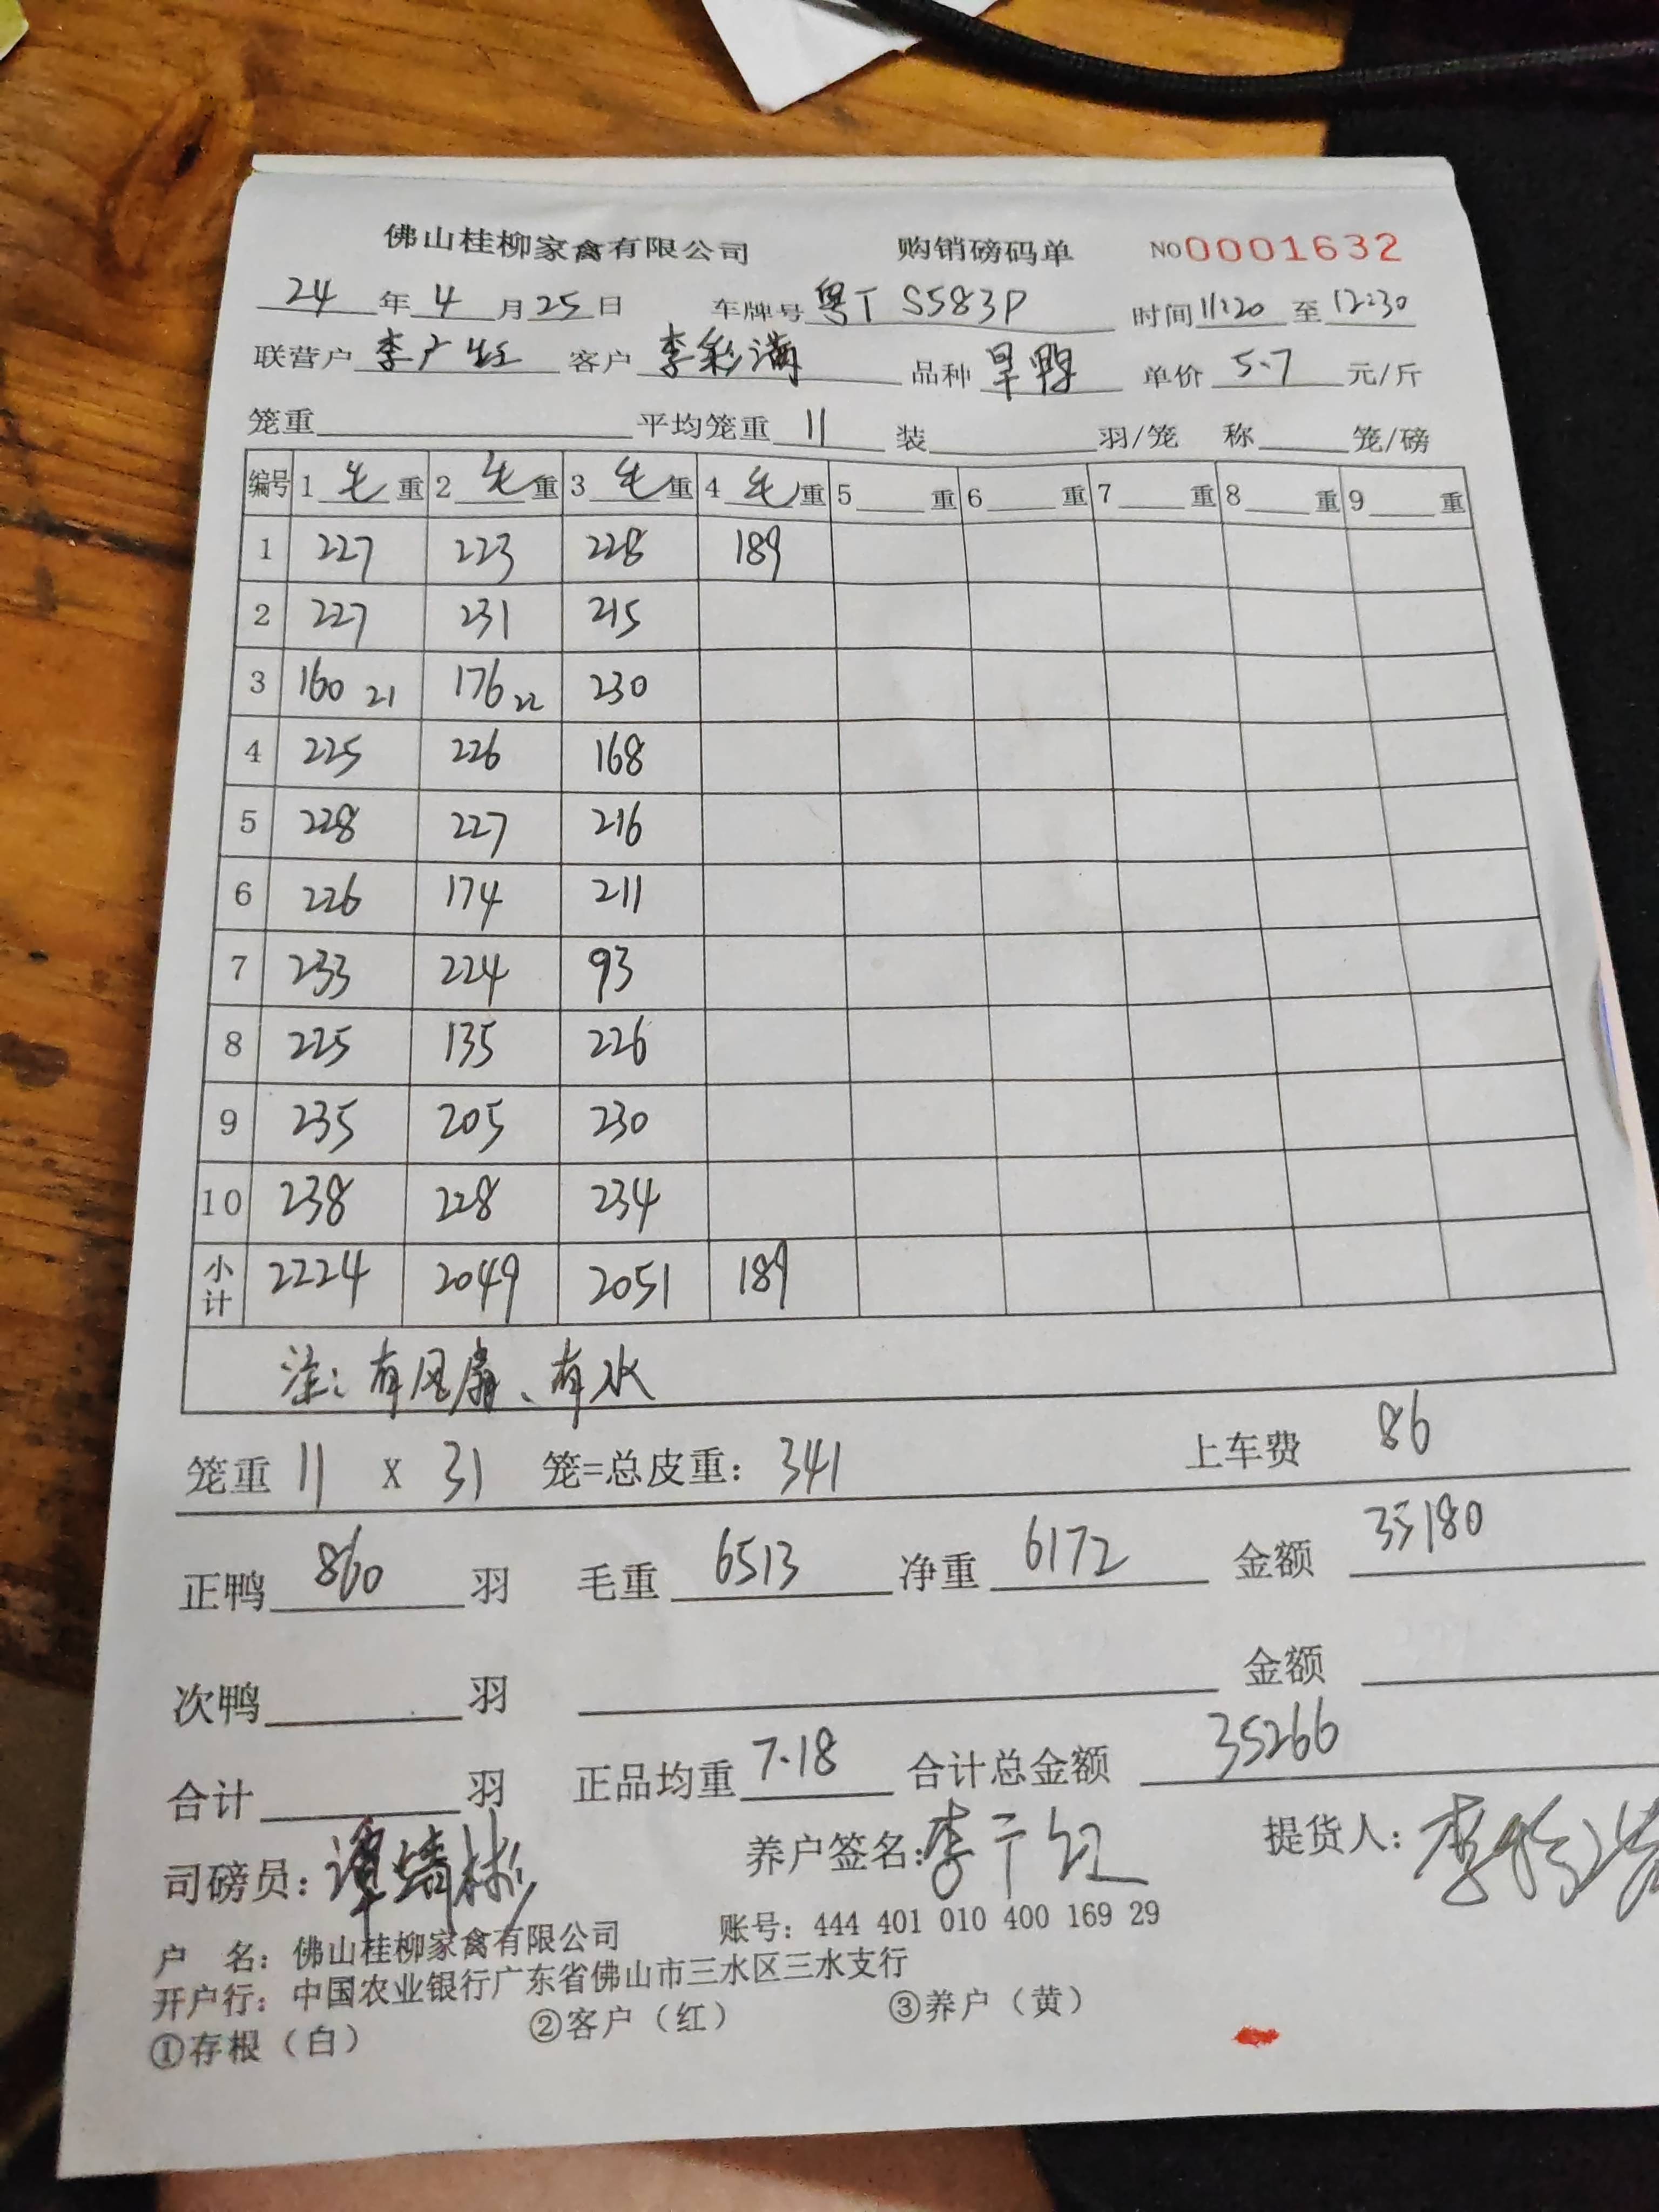 佛山桂柳家禽有限公司 购销磅码单 NO0001632
24 年 4 月 25 日 车牌号 粤T S583P 时间 11:20 至 12:30
联营户 李广 客户 李彩满 品种 旱鸭 单价 5.7 元/斤
笼重 平均笼重 11 装 羽/笼 称 笼/磅
编号 1 毛 重 2 毛 重 3 毛 重 4 毛 重 5 重 6 重 7 重 8 重 9 重
1 227 223 228 189
2 227 231 215
3 160 21 176 22 230
4 225 226 168
5 228 227 216
6 226 174 211
7 233 224 93
8 225 135 226
9 235 205 230
10 238 228 234
小计 2224 2049 2051 189
注: 有风扇、有水
笼重 11 x 31 笼=总皮重: 341 上车费 86
正鸭 860 羽 毛重 6513 净重 6172 金额 35180
次鸭 羽 金额
合计 羽 正品均重 7.18 合计总金额 35266
司磅员: 谭 彬 养户签名: 李 提货人: 李
户 名: 佛山桂柳家禽有限公司 账号: 444 401 010 400 169 29
开户行: 中国农业银行广东省佛山市三水区三水支行
①存根（白） ②客户（红） ③养户（黄）